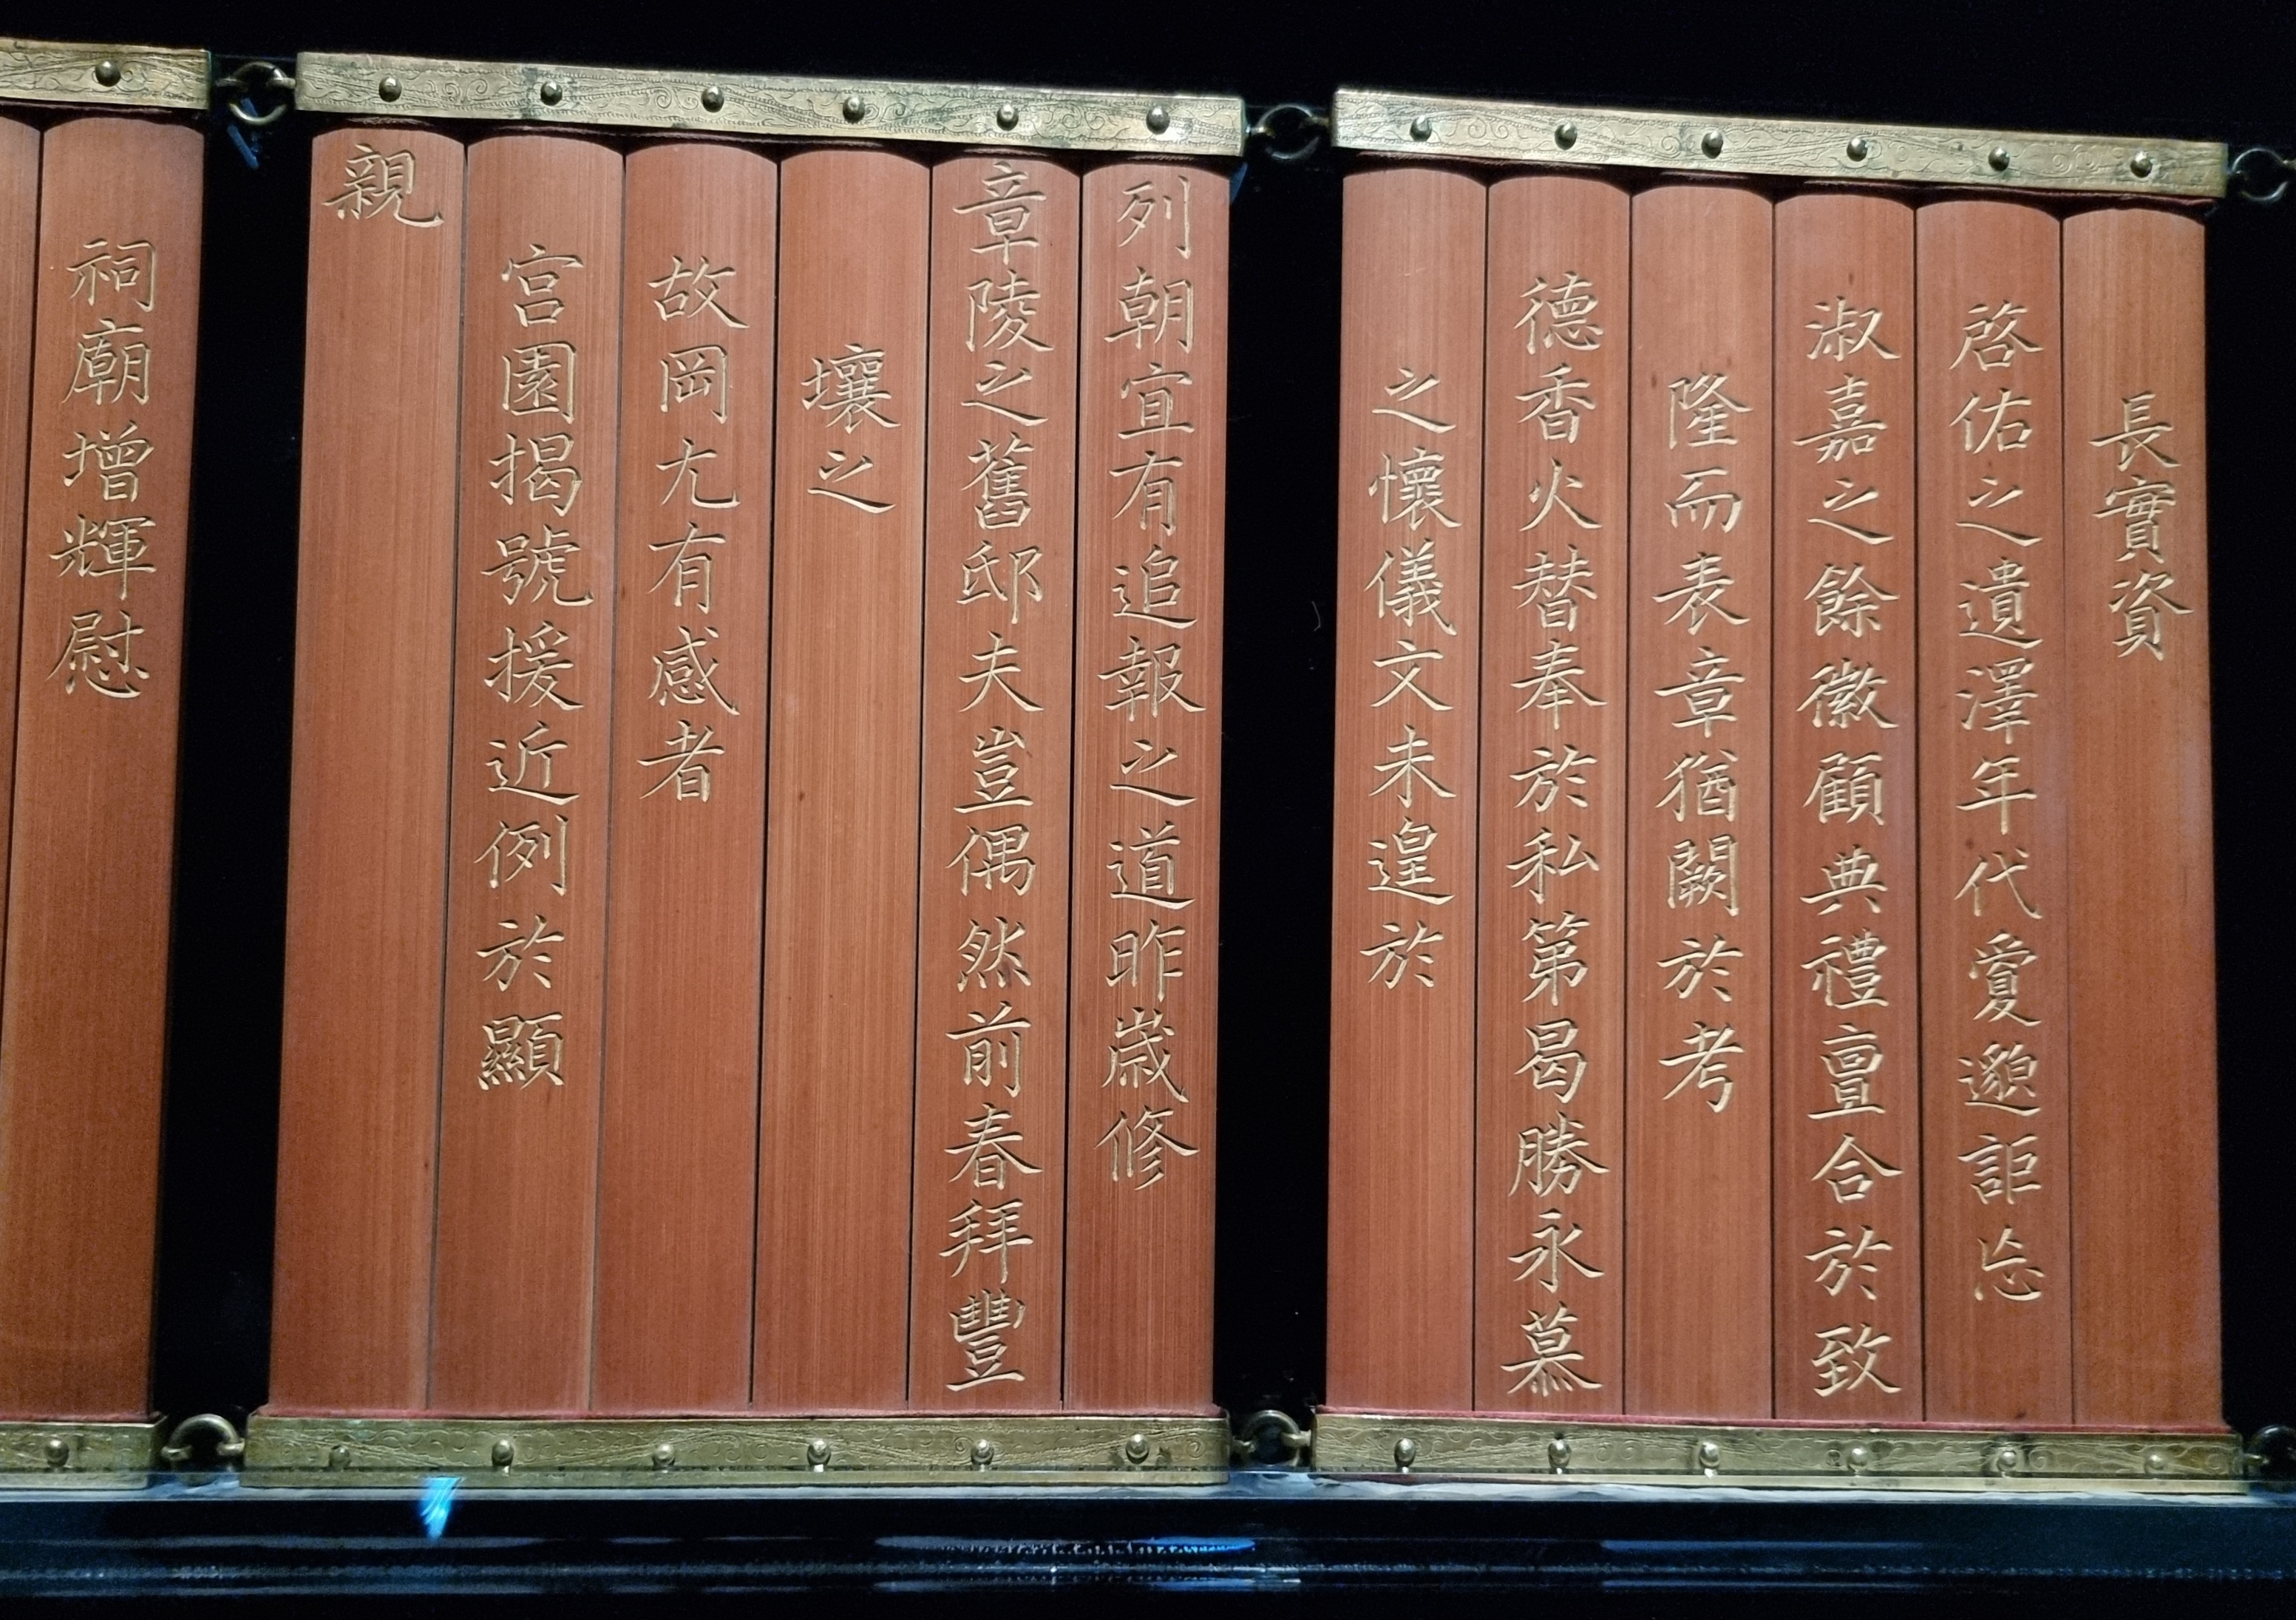 長實資
啓佑之遺澤年代夐邈詎忘
淑嘉之餘徽顧典禮亶合於致
隆而表章猶闕於考
德香火替奉於私第曷勝永慕
之懷儀文未遑於
列朝宜有追報之道昨歲修
章陵之舊邸夫豈偶然前春拜豐
壤之
故岡尤有感者
宮園揭號援近例於顯
親
祠廟增輝慰